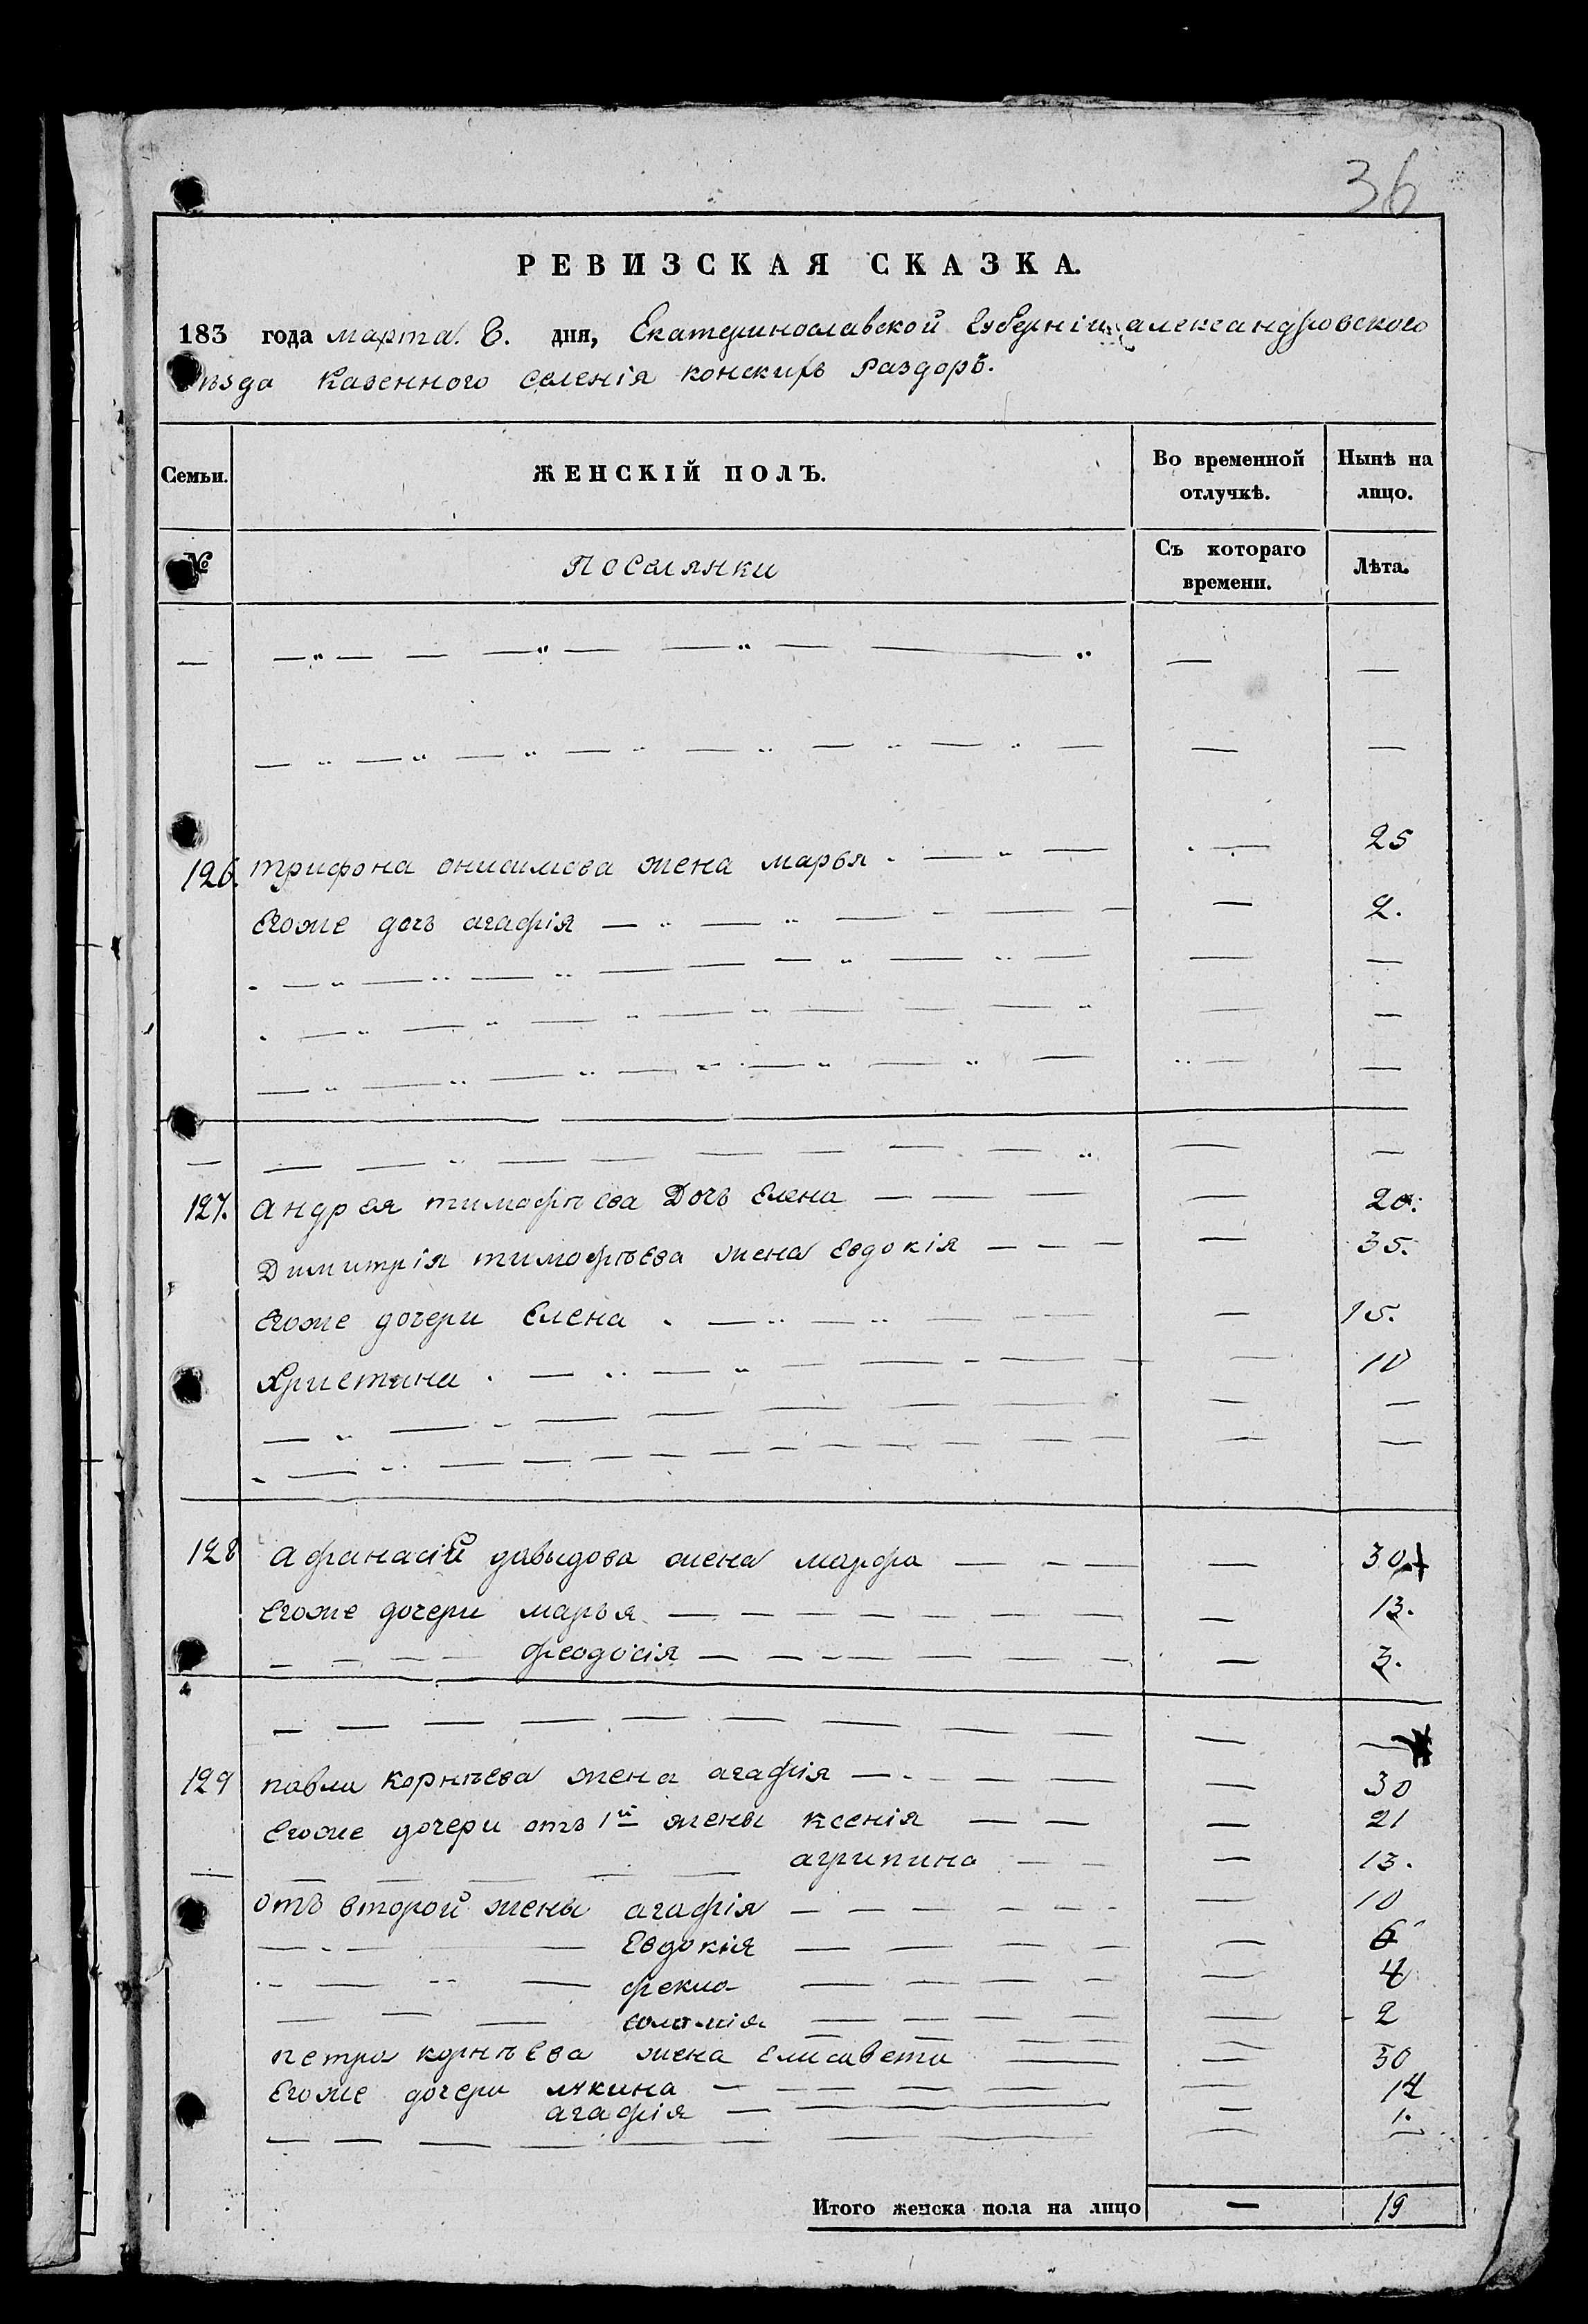 36
РЕВИЗСКАЯ СКАЗКА.
183 года марта 6. дня, Екатеринославской Губерніи александровского
уѣзда Казенного Селенія конскихъ Раздоръ.
Семьи. ЖЕНСКІЙ ПОЛЪ. Во временной отлучкѣ. Нынѣ на лицо.
№ Поселянки Съ котораго времени. Лѣта.
126. трифона онисимова жена марья 25
Егоже дочь агафія 2.
127. андрея тимофѣева Дочь Елена 20.
Димитрія тимофѣева жена Евдокія 35.
Егоже дочери Елена 15.
Христина 10
128 афанасій давыдова жена марфа 30.
Егоже дочери марья 13.
феодосія 3.
129 павла корнѣева жена агафія 30
Егоже дочери отъ 1й жены ксенія 21
агрипина 13.
отъ второй жены агафія 10
Евдокія 6
фекла 4
соломія 2
петра корнѣева жена Елисавета 30
Егоже дочери акина 14
агафія 1.
Итого женска пола на лицо — 19